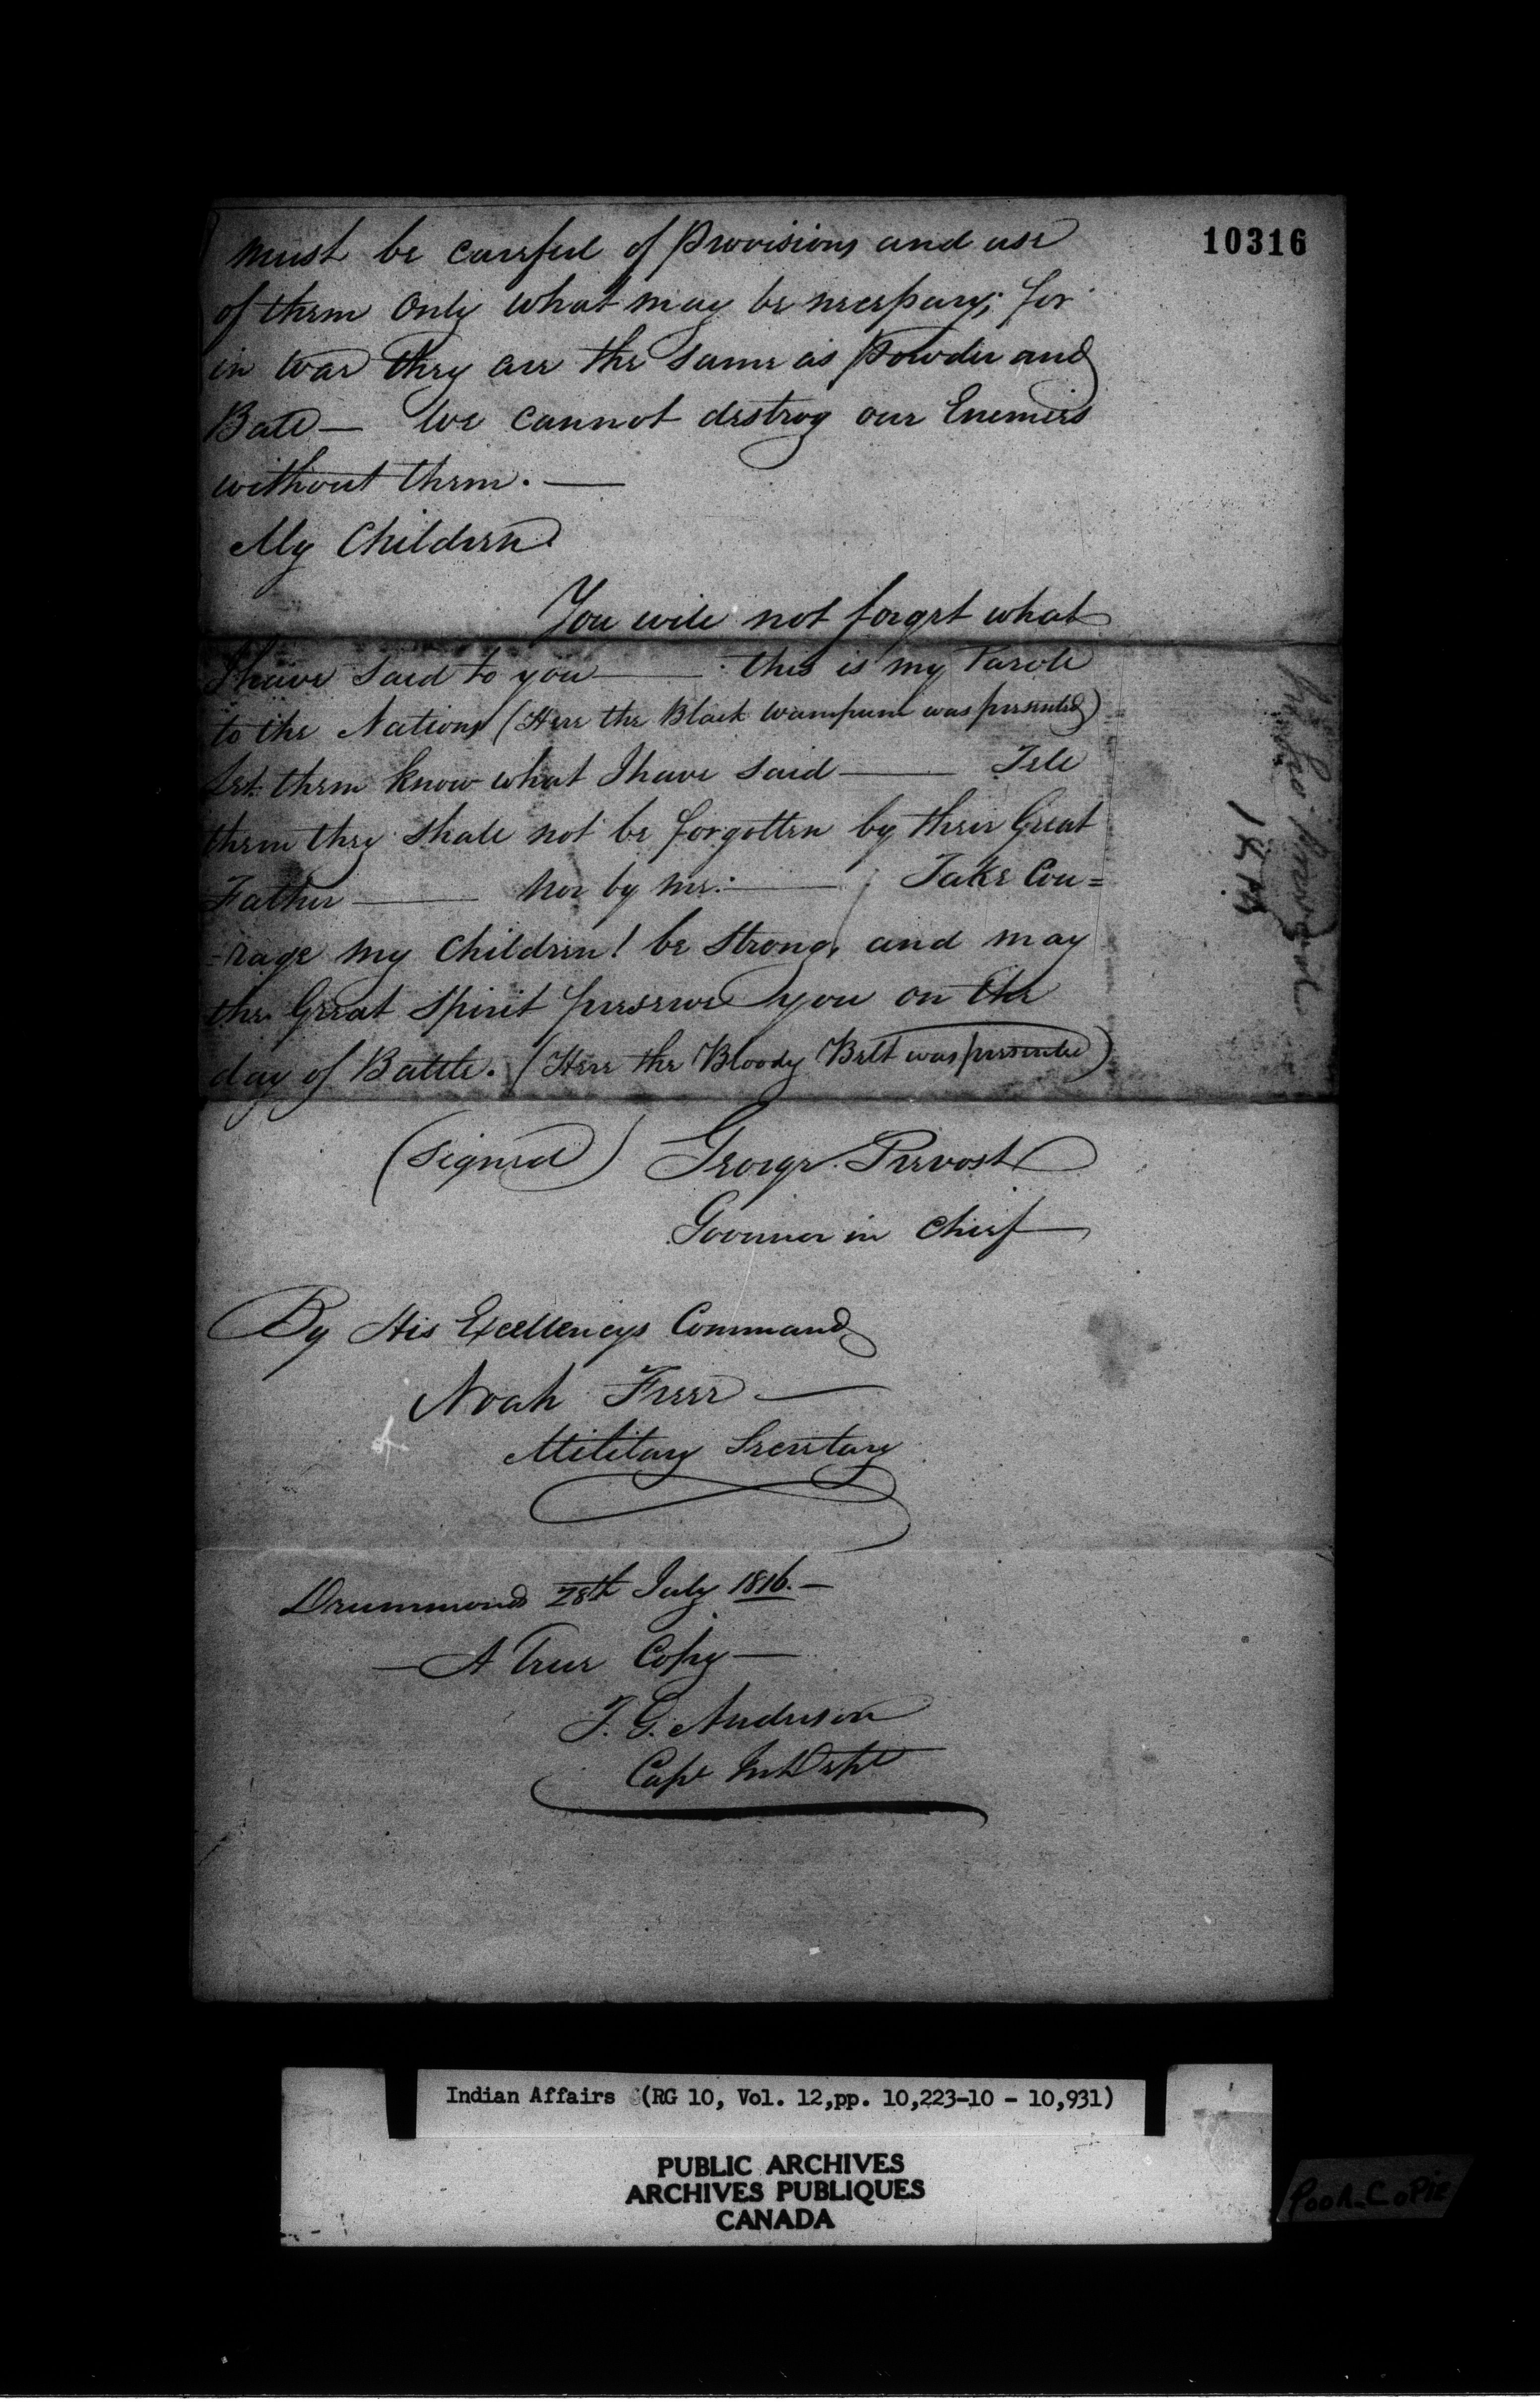 10316
must be careful of Provisions and use
of them only what may be necessary; for
in War they are the same as Powder and
Ball — We cannot destroy our Enemies
without them. —
My Children
You will not forget what
I have said to you — this is my Parole
to the Nations (Here the Black Wampum was presented)
Let them know what I have said — Tell
them they shall not be forgotten by their Great
Father — nor by me: — Take Cou=
=rage my Children! be Strong, and may
the Great Spirit preserve you on the
day of Battle. (Here the Bloody Belt was presented)
(Signed) George Prevost
Governor in Chief
By His Excellencys Command
Noah Freer —
Military Secretary
Drummond 28th July 1816. —
— A True Copy —
T. G. Anderson
Capt Ind Dept
1814
Indian Affairs (RG 10, Vol. 12, pp. 10,223-10 - 10,931)
PUBLIC ARCHIVES
ARCHIVES PUBLIQUES
CANADA
POOR COPIE